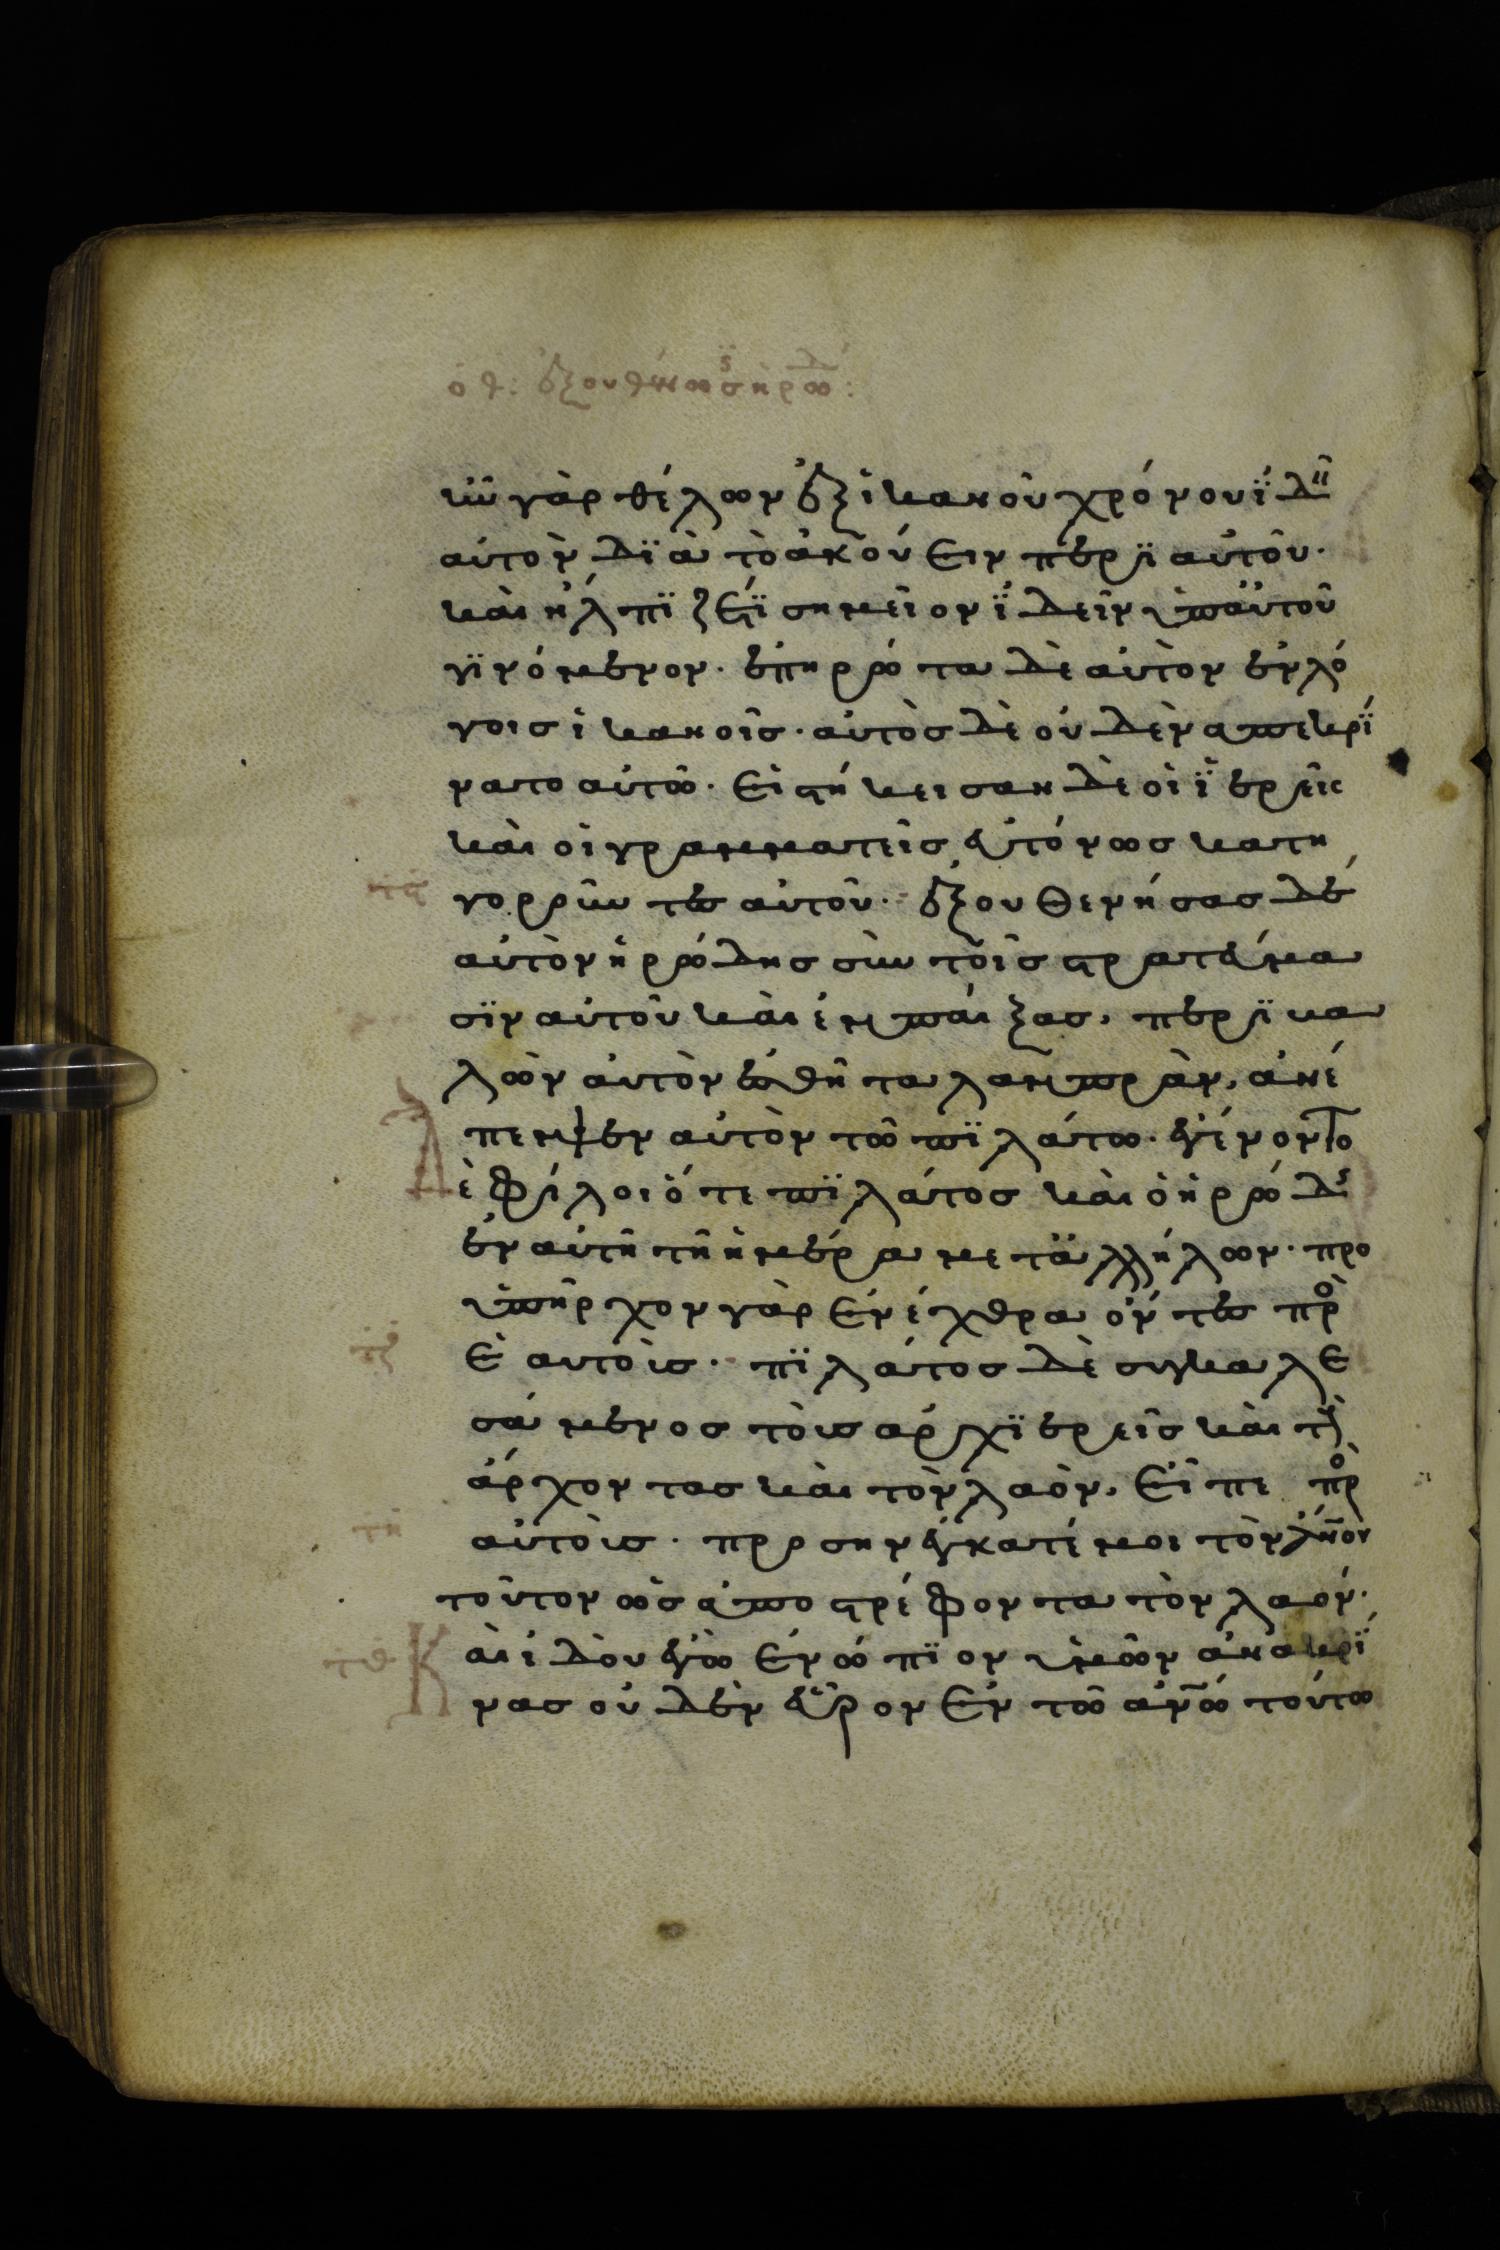 οθ: ἐξουθενώσεως ἡρώδου:
ἦν γὰρ θέλων ἐξ ἱκανοῦ χρόνου ἰδεῖν
αὐτὸν διὰ τὸ ἀκούειν περὶ αὐτοῦ·
καὶ ἤλπιζέ τι σημεῖον ἰδεῖν ὑπ' αὐτοῦ
γινόμενον· ἐπηρώτα δὲ αὐτὸν ἐν λό
γοις ἱκανοῖς· αὐτὸς δὲ οὐδὲν ἀπεκρί
νατο αὐτῶ· εἱστήκεισαν δὲ οἱ ἱερεῖς
καὶ οἱ γραμματεῖς εὐτόνως κατη
γοροῦντες αὐτοῦ· ἐξουθενήσας δὲ
τε
αὐτὸν ἡρώδης σὺν τοῖς στρατεύμα
σιν αὐτοῦ καὶ ἐμπαίξας, περιβα
λὼν αὐτὸν ἐσθῆτα λαμπρὰν, ἀνέ
πεμψεν αὐτὸν τῶ πιλάτω· ἐγένοντο
δὲ φίλοι ὅ τε πιλάτος καὶ ὁ ἡρώδης
ἐν αὐτῆ τῆ ἡμέρα μετ' ἀλλήλων· προ
ϋπῆρχον γὰρ ἐν ἔχθρα ὄντες πρὸς
ἑαυτοὺς· πιλάτος δὲ συγκαλε
τζ
σάμενος τοὺς ἀρχιερεῖς καὶ τοὺς
ἄρχοντας καὶ τὸν λαὸν, εἶπε πρὸς
αὐτοὺς· προσηνέγκατέ μοι τὸν ἄνον
τη
τοῦτον ὡς ἀποστρέφοντα τὸν λαόν·
Καὶ ἰδοὺ ἐγὼ ἐνώπιον ὑμῶν ἀνακρί
τθ
νας οὐδὲν εὗρον ἐν τῶ ἀνω τούτω